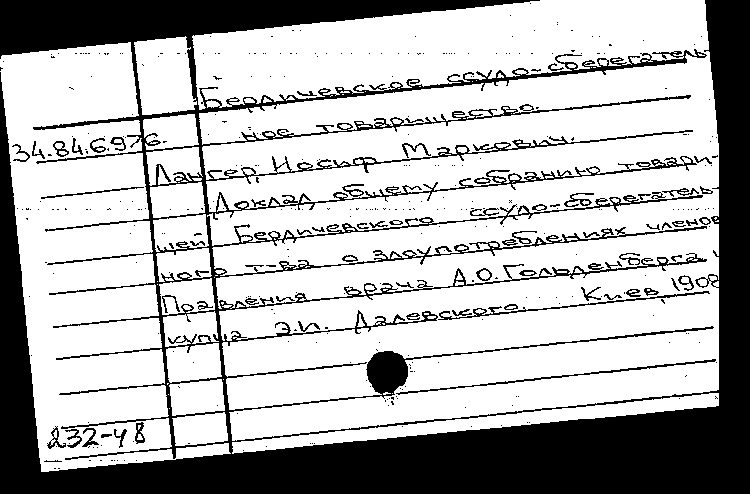 Бердичевское ссудо-сберегатель-
ное товарищество.
34.84.6.976.
Лангер, Иосиф Маркович.
Доклад общему собранию товари-
щей Бердичевского ссудо-сберегатель-
ного т-ва о злоупотреблениях членов
Правления врача А.О. Гольденберга и
купца Э.И. Далевского. Киев, 1908
232-48